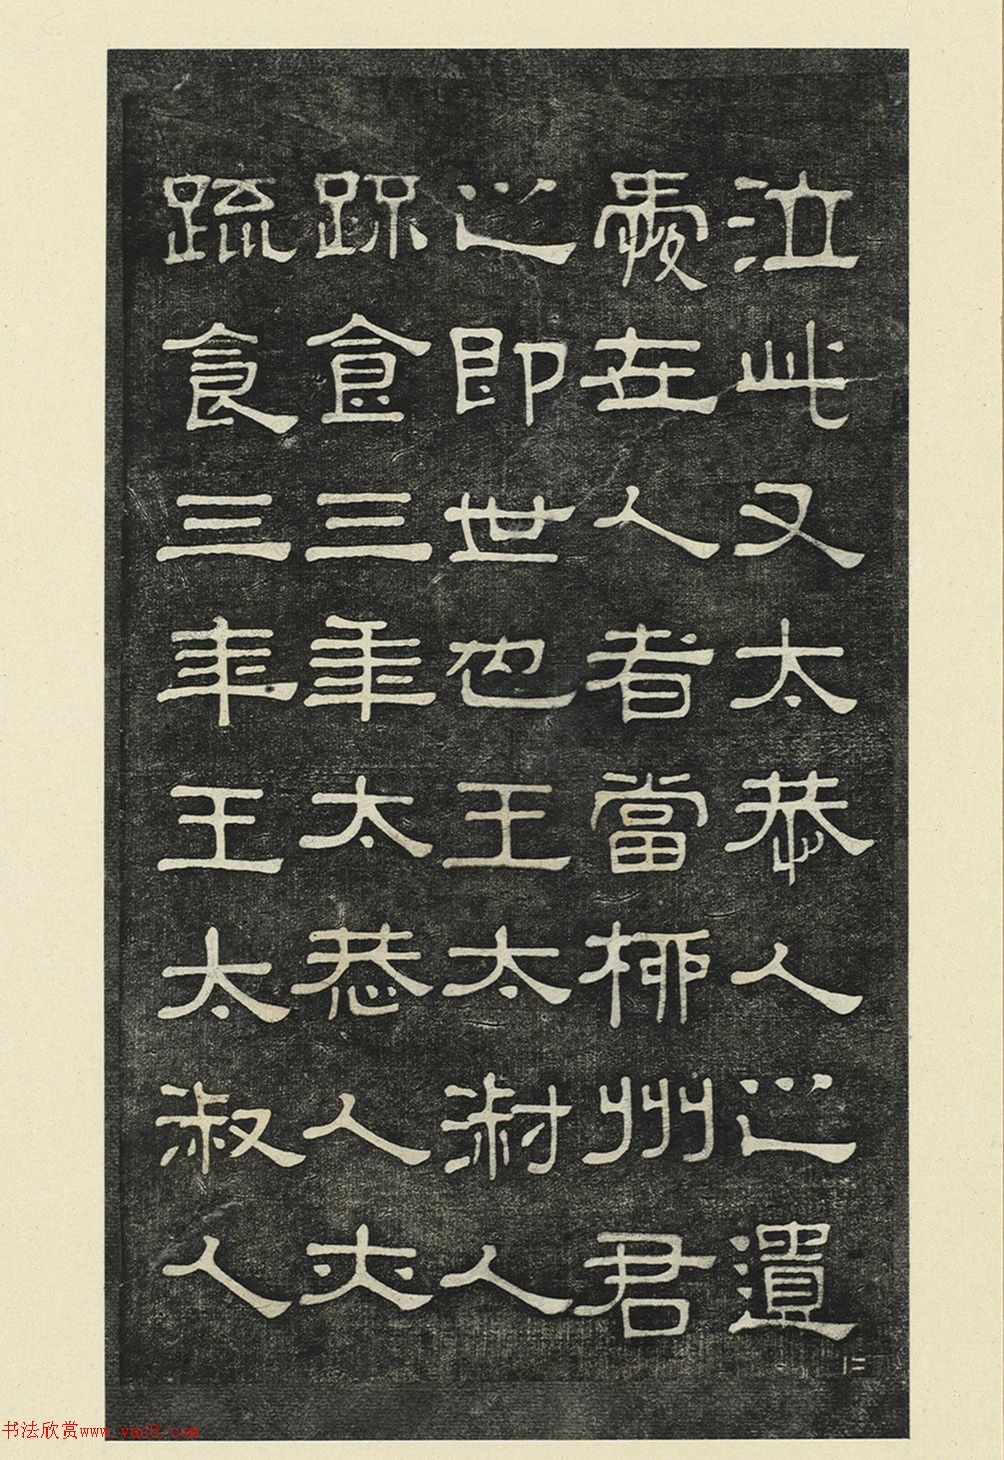 泣此又太恭人之遺
愛在人者當柳州君
之即世也王太淑人
踈食三年太恭人亦
疏食三年王太淑人
书法欣赏www.yac8.com